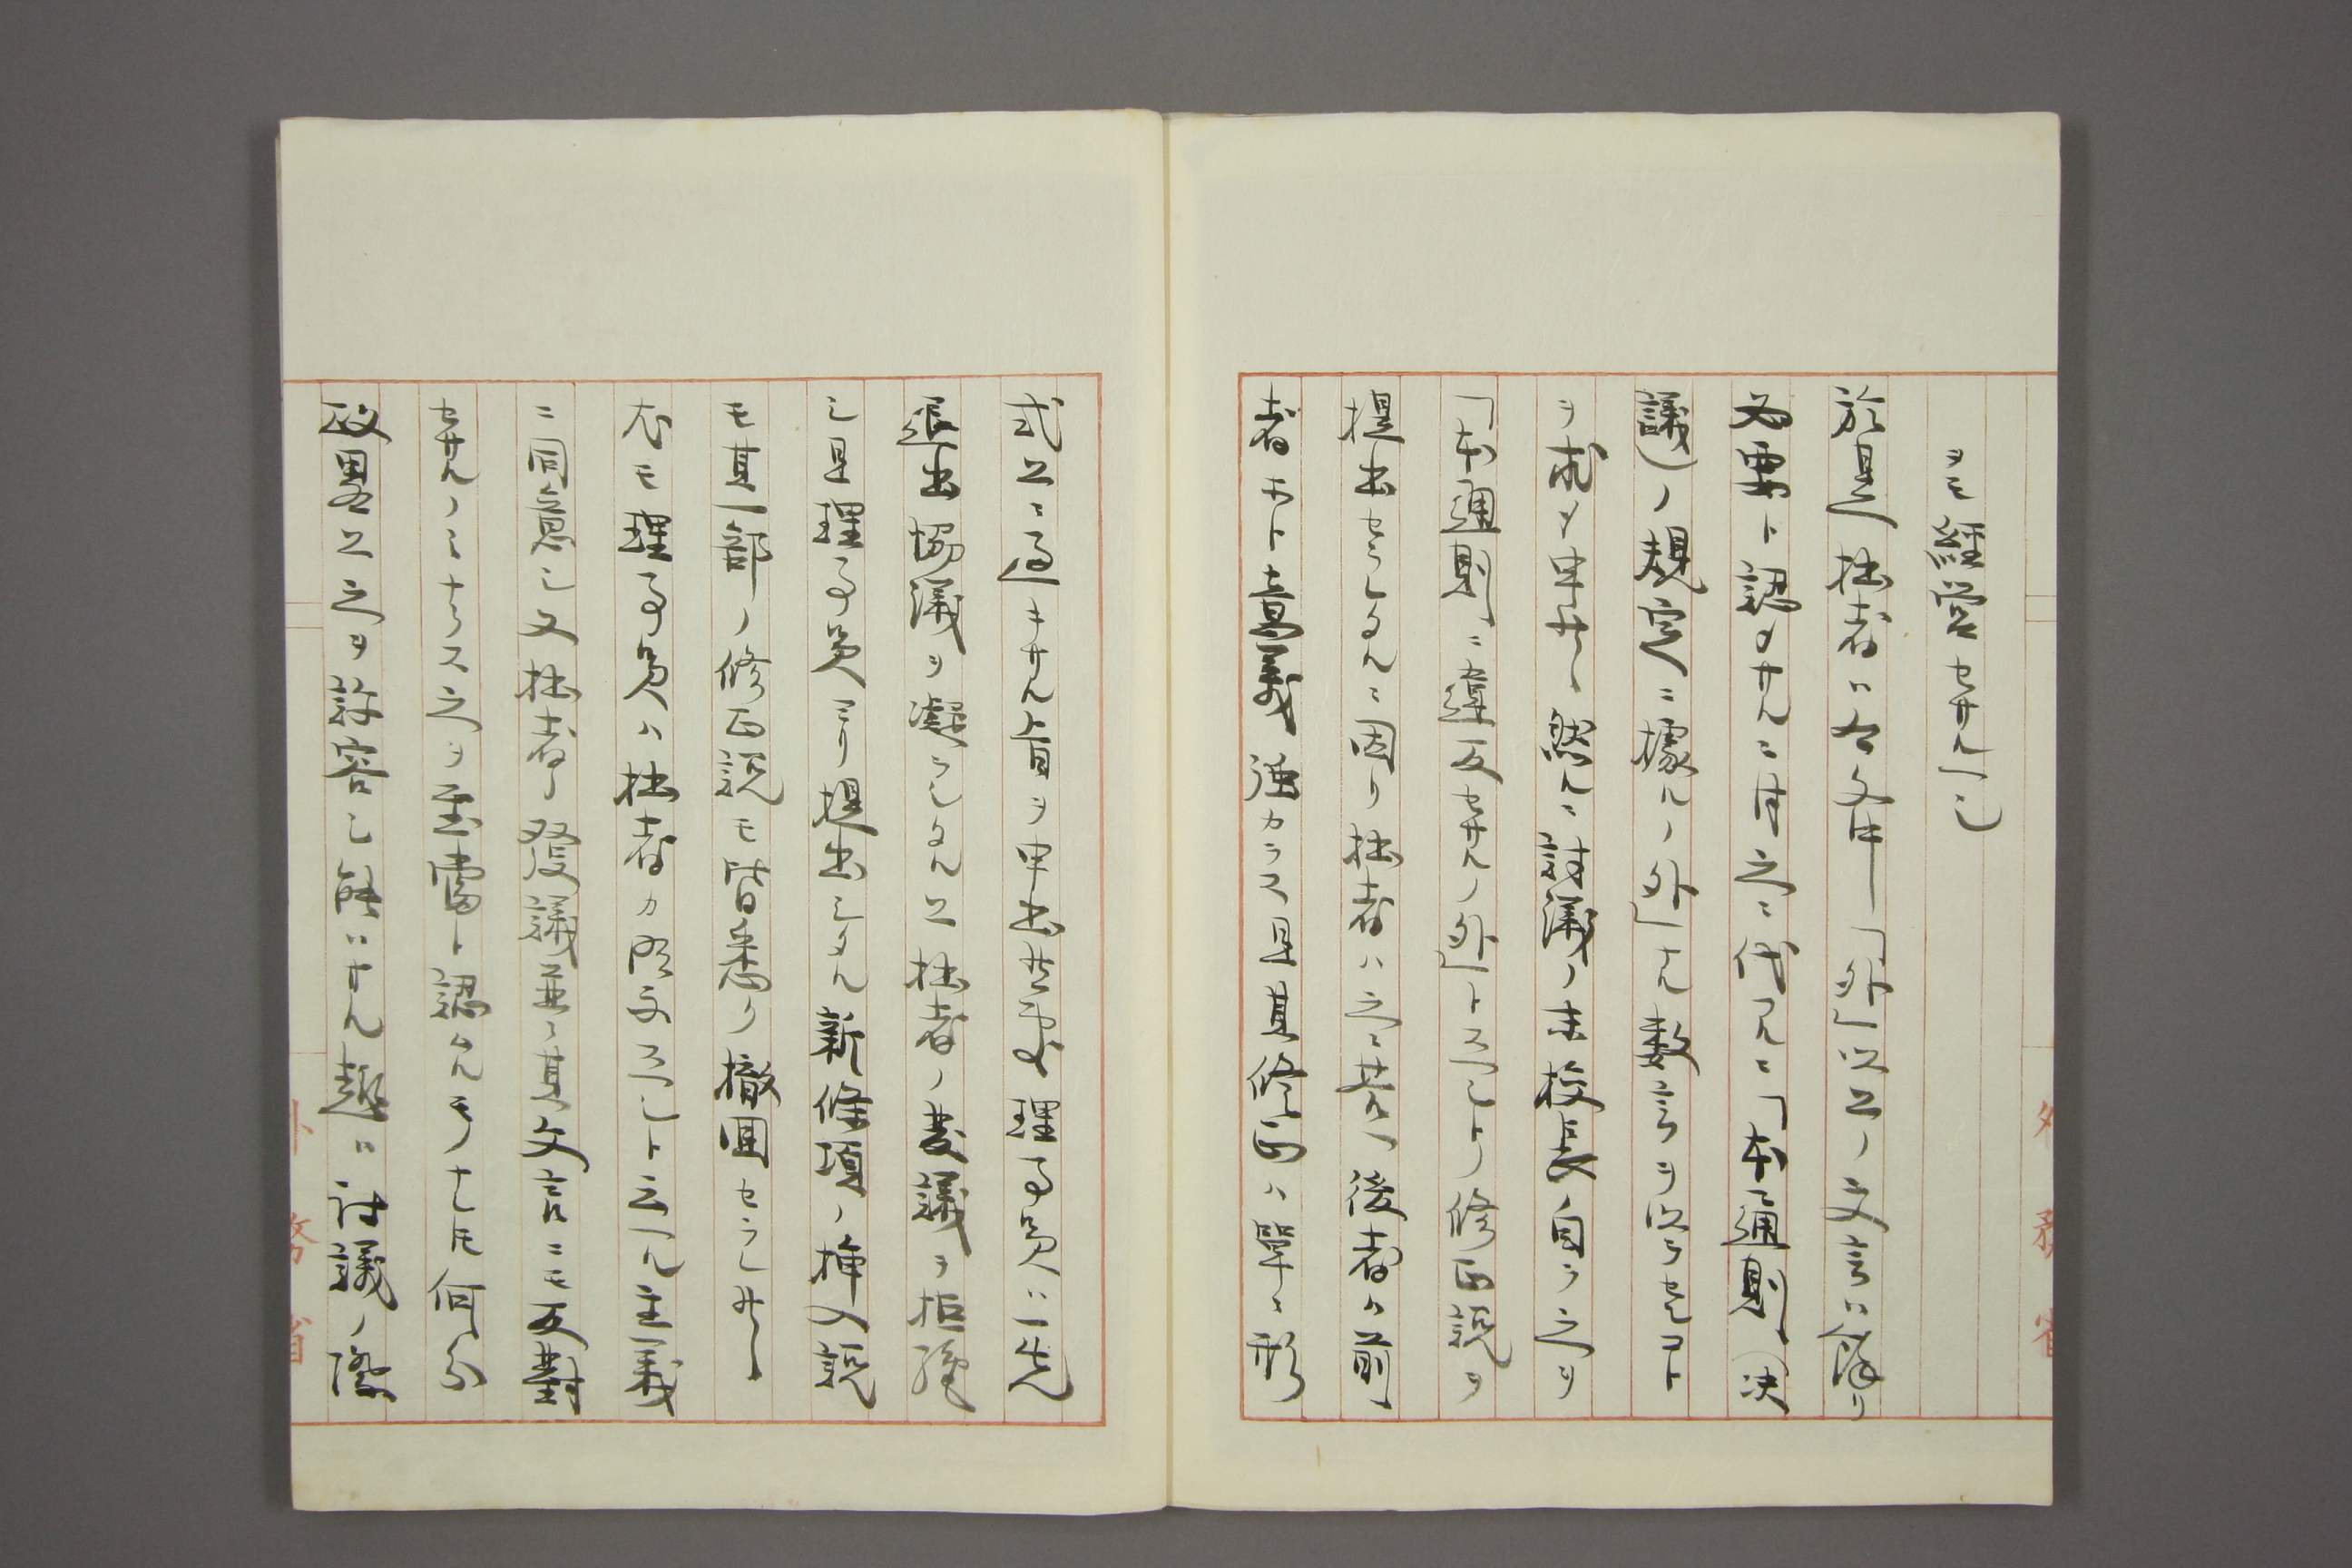 ヲモ議容セサルヘシ
於是拙者ハ右文中「外ハ以上ノ文言ハ餘リ
必要ト認メサルニ由之ニ代フルニ「本通則」(決
議)ノ規定ニ據ルノ外ナル数言ヲ以テセンコト
ヲ求メ申候然ルニ討議ノ末校長自ラ之ヲ
「本通則」ニ違反セサルノ外トスヘシトノ修正説ヲ
提出セラレタルニ因リ拙者ハ之ニ替ヘ後者ハ前
者ホト意義強カラス且其修正ハ單ニ形
式上ニ過キサル旨ヲ申出其末理事員ハ一先
退出協議ヲ凝ラシタル上拙者ノ発議ヲ拒絶
シ且理事員ヨリ提出シタル新條項ノ挿入説
モ其一部ノ修正説モ皆悉ク撤回セラレ候
尤モ理事員ハ拙者カ堅守スヘシト云ヘル主義
ニ同意シ又拙者ノ發議並ニ其文言ニモ反對
セサルノミナラス之ヲ至當ト認ムルモノナルモ何分
政略上之ヲ許容シ難ニサル趣ニ付議ノ際
外務省
外務省